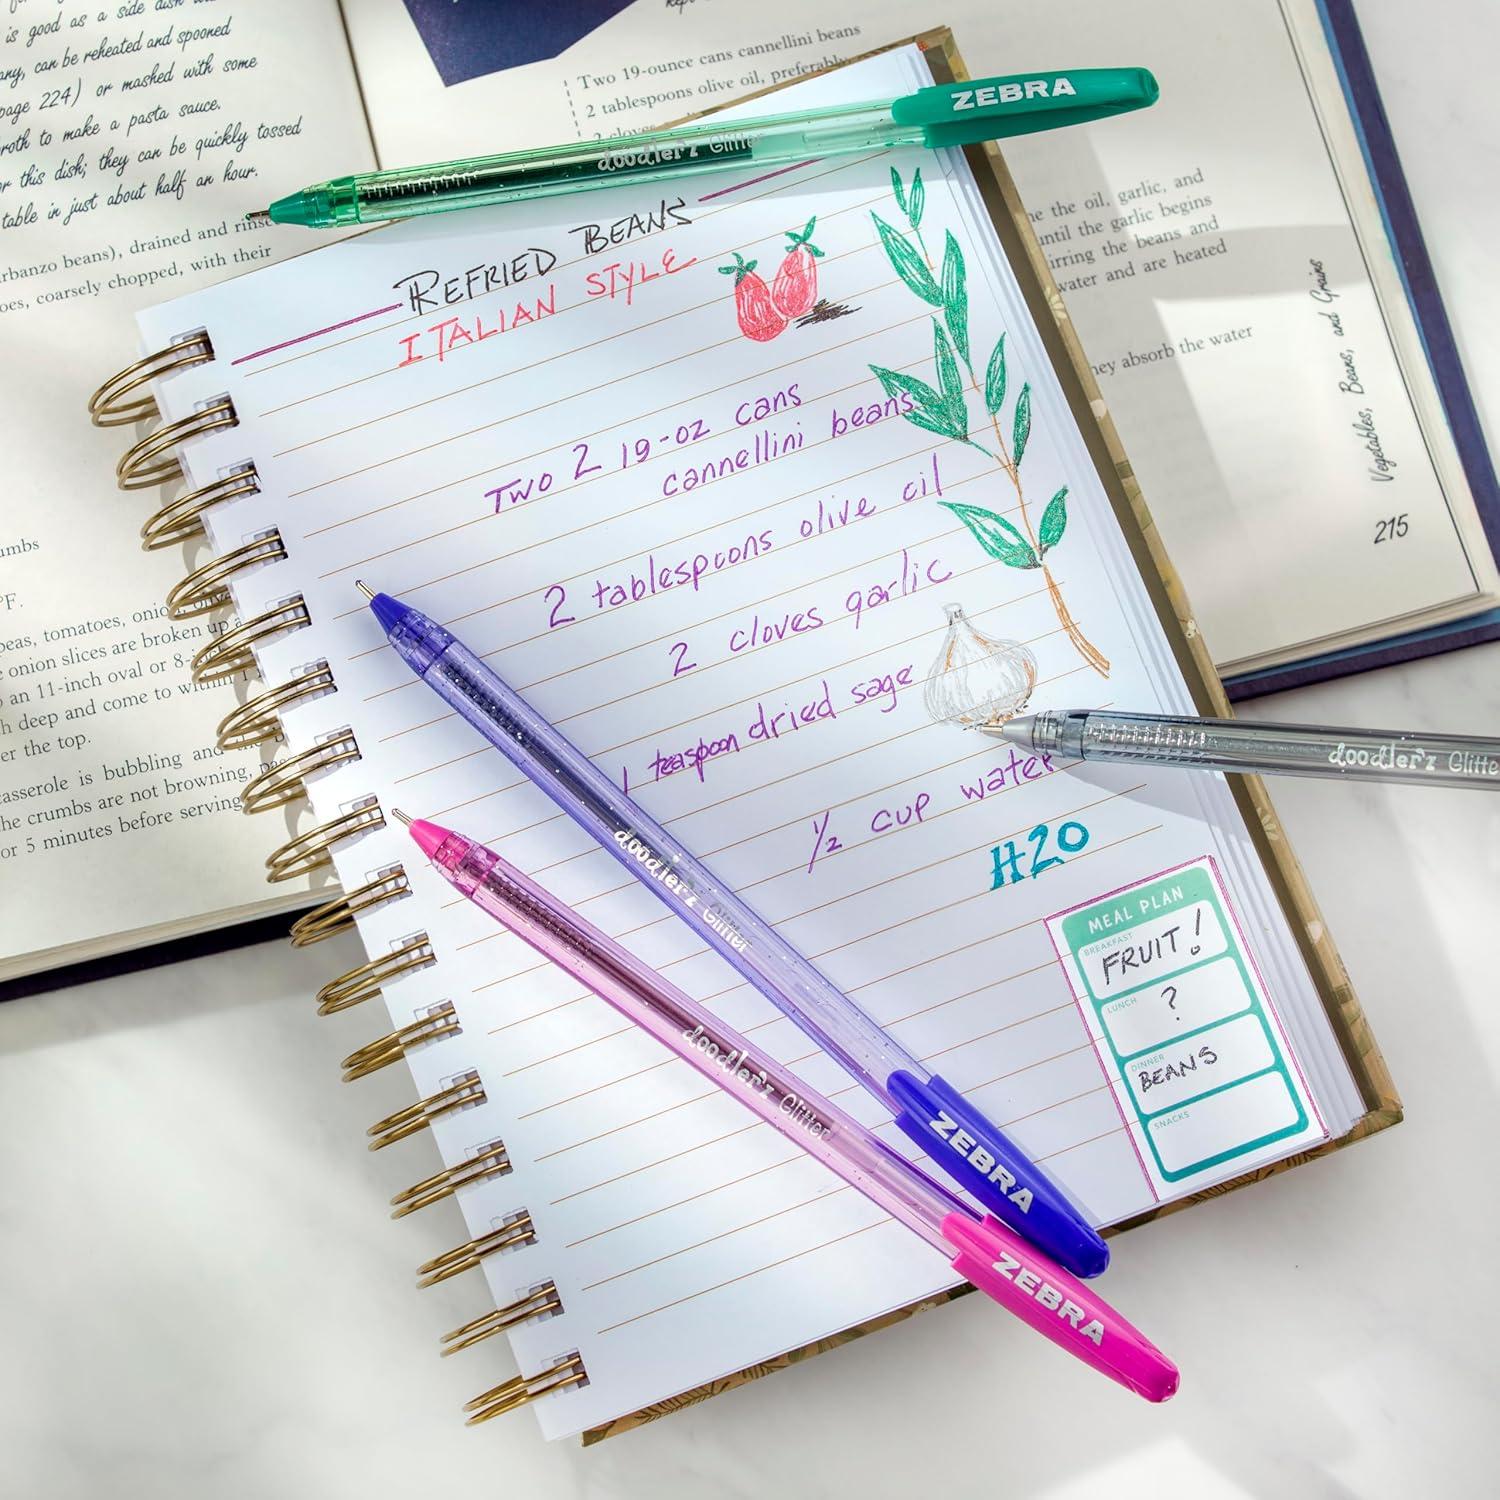 is good as a side dish
any, can be reheated and spooned
page 224) or mashed with some
broth to make a pasta sauce.
or this dish; they can be quickly tossed
table in just about half an hour.
rbanzo beans), drained and rinse
oes, coarsely chopped, with their
umbs
°F.
peas, tomatoes, onion, olive
e onion slices are broken up a
o an 11-inch oval or 8-inch
h deep and come to within 1
er the top.
casserole is bubbling and the b
he crumbs are not browning,
or 5 minutes before serving
Two 19-ounce cans cannellini beans
2 tablespoons olive oil, preferably
2 cloves
the oil, garlic, and
until the garlic begins
irring the beans and
water and are heated
hey absorb the water
Vegetables, Beans, and Grains
215
ZEBRA
doodler'z Glitter
REFRIED BEANS
ITALIAN STYLE
TWO 2 19-OZ cans
cannellini beans
2 tablespoons olive oil
2 cloves garlic
1 teaspoon dried sage
1/2 cup water
H2O
doodler'z Glitter
doodler'z Glitter
ZEBRA
doodler'z Glitter
ZEBRA
MEAL PLAN
BREAKFAST
FRUIT!
LUNCH
?
DINNER
BEANS
SNACKS